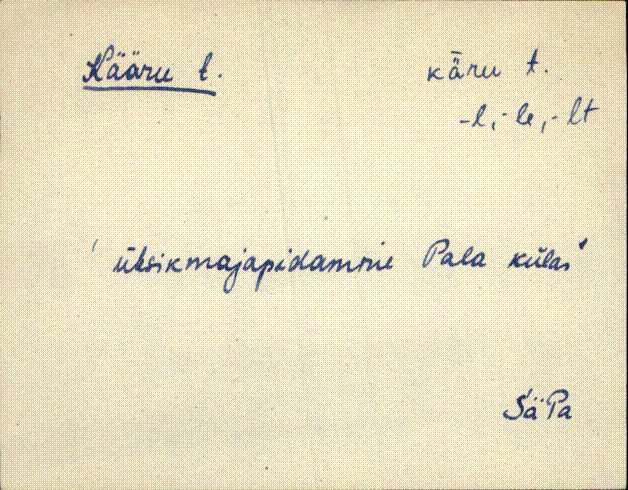 Kääru t. käru t.
-l, -le, -lt
'üksikmajapidamine Pala külas'
SäPa